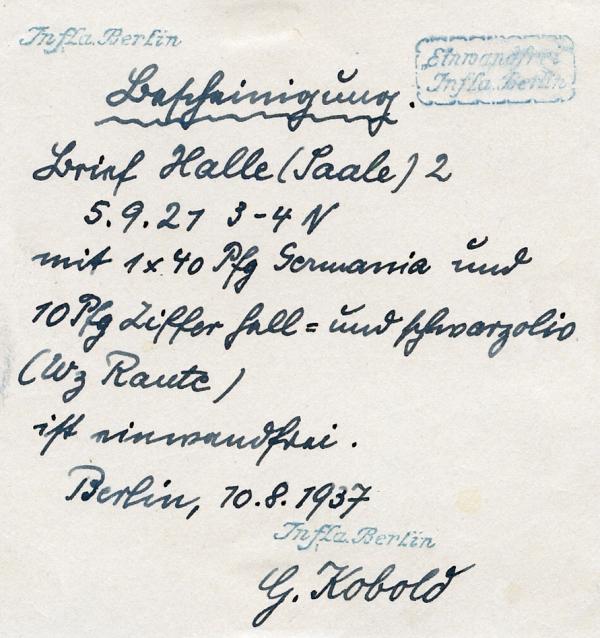 Infla.Berlin
Einwandfrei
Infla.Berlin
Bescheinigung.
Brief Halle (Saale) 2
5.9.21 3-4 N
mit 1x40 Pfg Germania und
10 Pfg Ziffer hell= und schwarzoliv
(Wz Raute)
ist einwandfrei.
Berlin, 10.8.1937
Infla.Berlin
G. Kobold